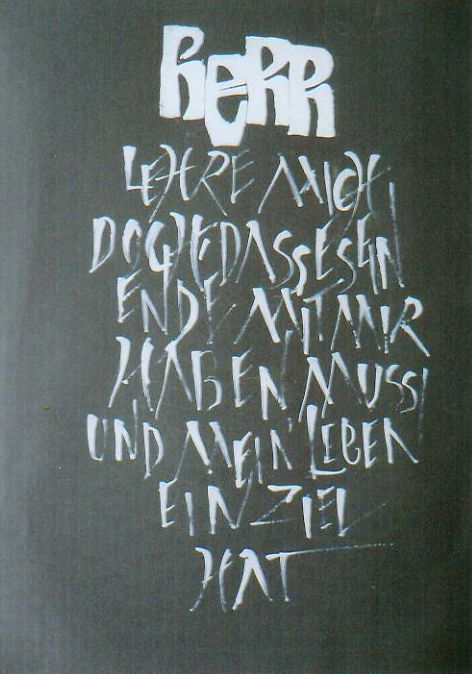 HERR
LEHRE MICH,
DOCH DASS ES EIN
ENDE MIT MIR
HABEN MUSS
UND MEIN LEBEN
EIN ZIEL
HAT